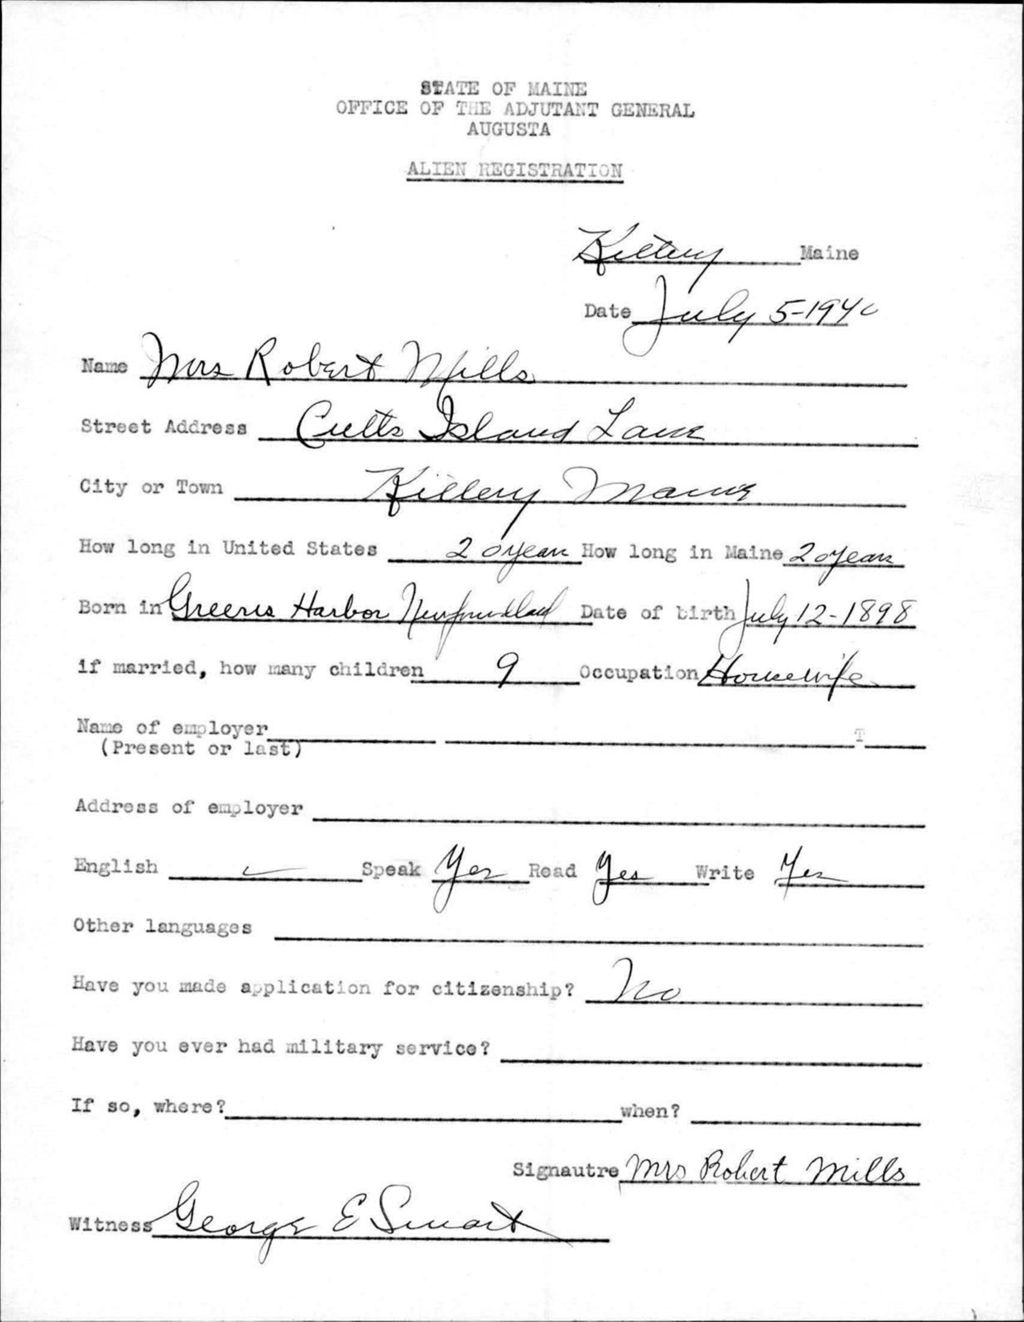 STATE OF MAINE
OFFICE OF THE ADJUTANT GENERAL
AUGUSTA
ALIEN REGISTRATION
Kittery Maine
Date July 5-1940
Name Mrs Robert Mills
Street Address Cutts Island Lane
City or Town Kittery Maine
How long in United States 20 years How long in Maine 20 years
Born in Greens Harbor Newfoundland Date of birth July 12-1898
if married, how many children 9 Occupation Housewife
Name of employer T
(Present or last)
Address of employer
English ✓ Speak Yes Read Yes Write Yes
Other languages
Have you made application for citizenship? No
Have you ever had military service?
If so, where? when?
Signautre Mrs Robert Mills
Witness George E Smart